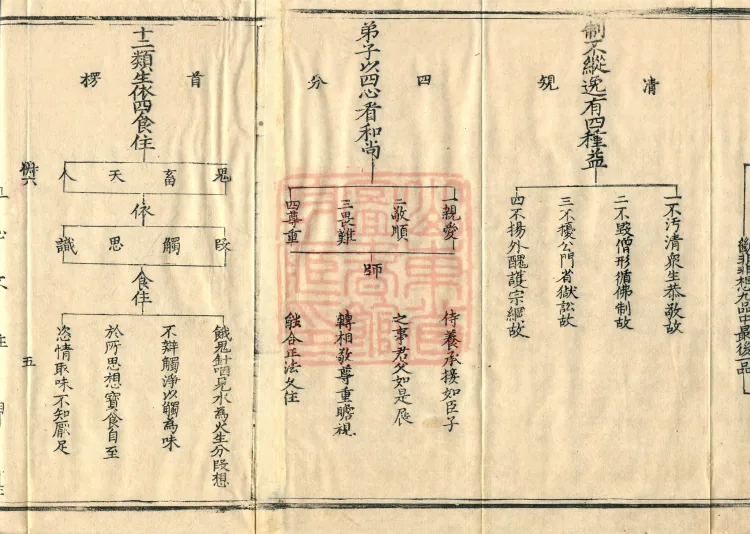 斂非非想九品中最後一品
清規
制不縱逸有四種益
一不汚清衆生恭敬故
二不毀僧形循佛制故
三不擾公門省獄訟故
四不揚外醜護宗綱故
四分
弟子以四心看和尚
一親愛
二敬順
三畏難
四尊重
師
侍養承接如臣子
之事君父如是展
轉相敬尊重瞻視
能令正法久住
首楞
十二類生依四食住
鬼畜天人
依
段觸思識
食住
餓鬼針咽見水為火生分段想
不辯觸淨以觸為味
於所思想寶食自至
恣情取味不知厭足
卌六
五